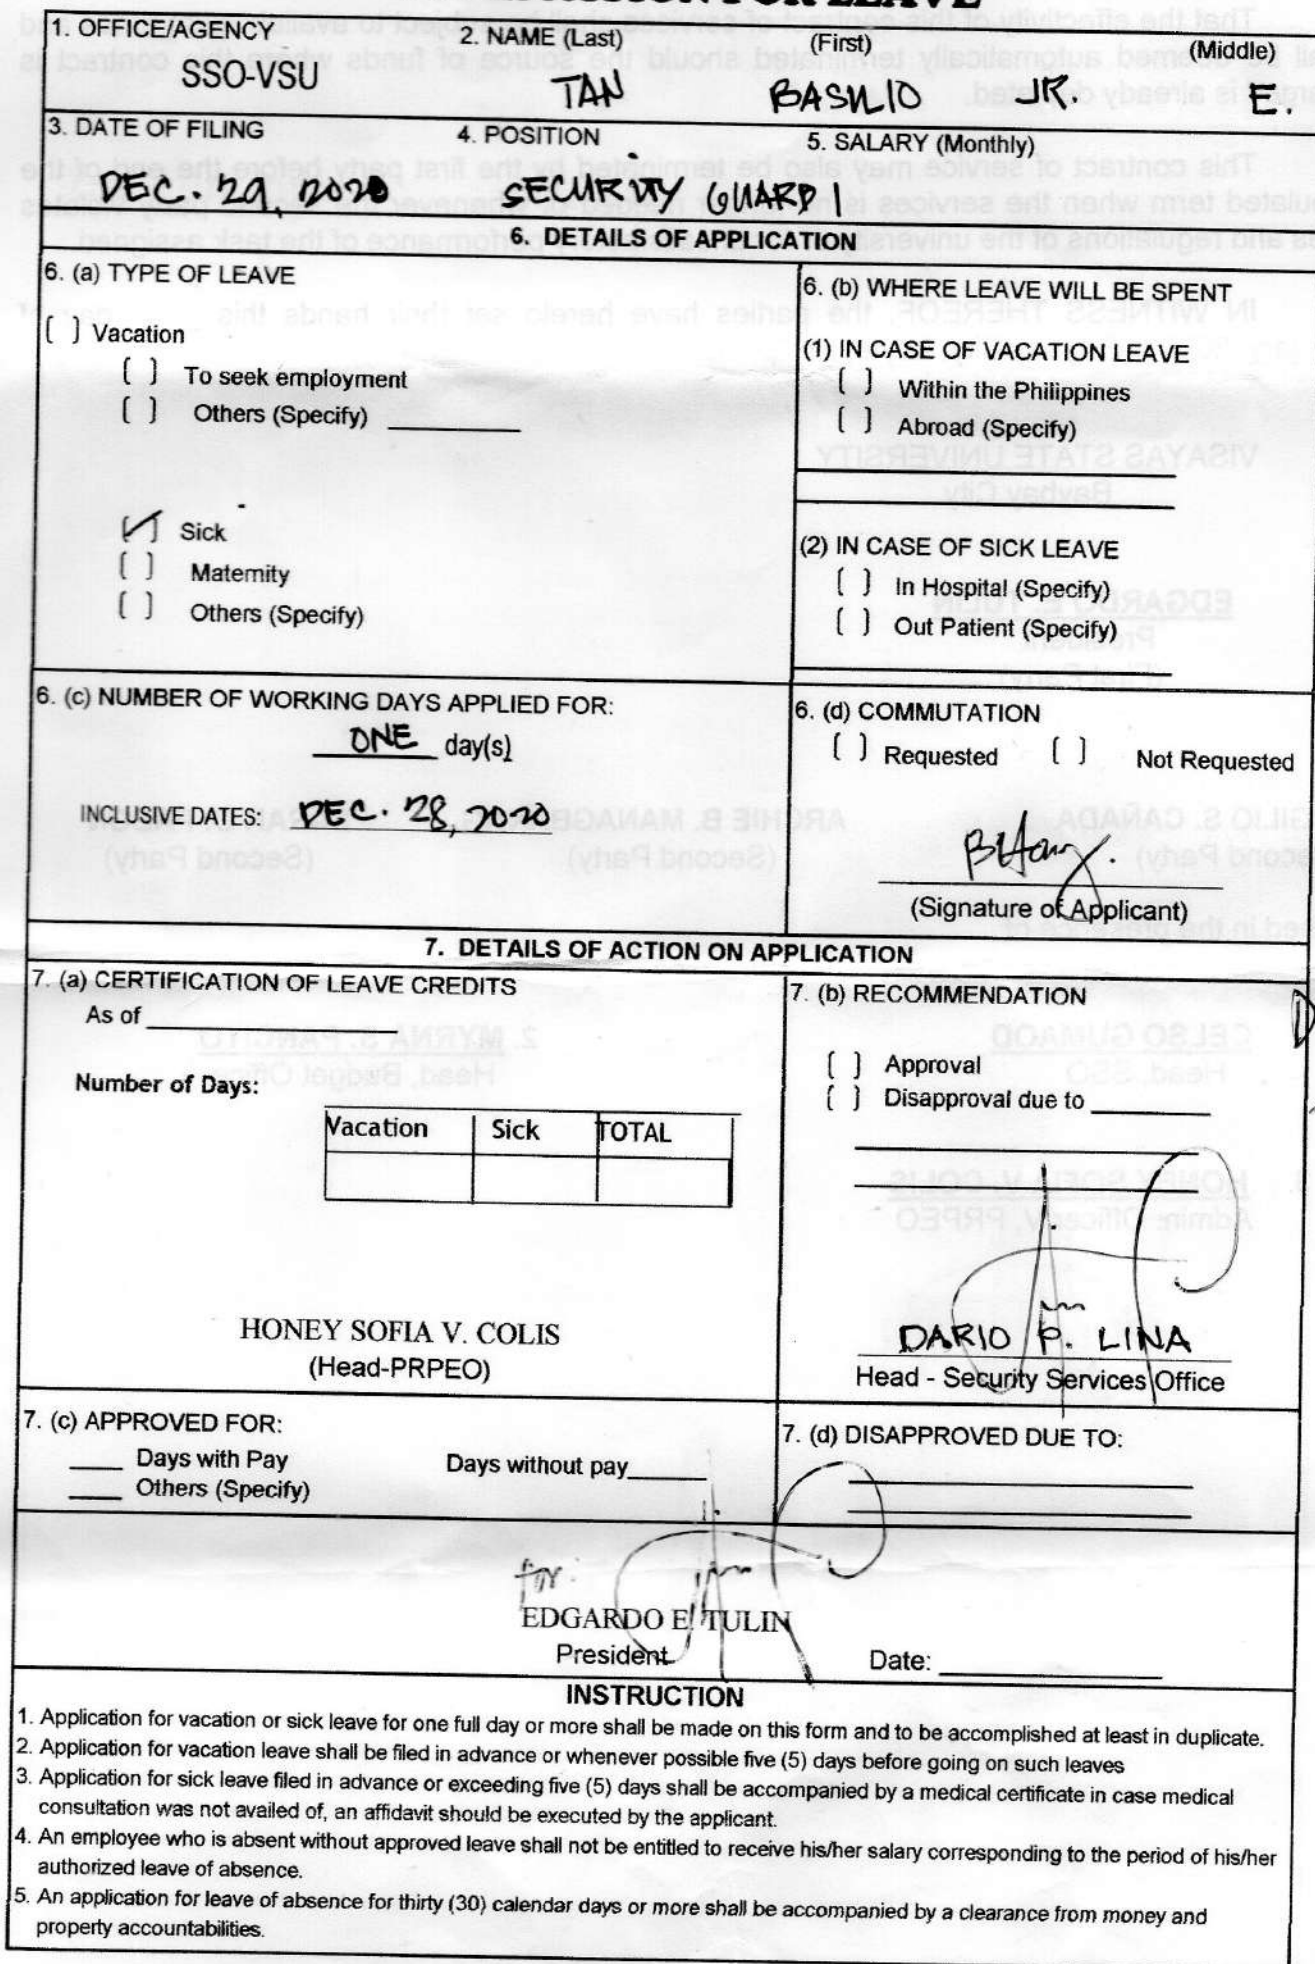 FOR LEAVE
1. OFFICE/AGENCY 2. NAME (Last) (First) (Middle)
SSO-VSU TAN BASILIO JR. E.
3. DATE OF FILING 4. POSITION 5. SALARY (Monthly)
DEC. 29, 2020 SECURITY GUARD I
6. DETAILS OF APPLICATION
6. (a) TYPE OF LEAVE
[ ] Vacation
[ ] To seek employment
[ ] Others (Specify) ________
[✓] Sick
[ ] Maternity
[ ] Others (Specify)
6. (b) WHERE LEAVE WILL BE SPENT
(1) IN CASE OF VACATION LEAVE
[ ] Within the Philippines
[ ] Abroad (Specify)
(2) IN CASE OF SICK LEAVE
[ ] In Hospital (Specify)
[ ] Out Patient (Specify)
6. (c) NUMBER OF WORKING DAYS APPLIED FOR:
ONE day(s)
INCLUSIVE DATES: DEC. 28, 2020
6. (d) COMMUTATION
[ ] Requested [ ] Not Requested
(Signature of Applicant)
7. DETAILS OF ACTION ON APPLICATION
7. (a) CERTIFICATION OF LEAVE CREDITS
As of ________
Number of Days:
Vacation Sick TOTAL
HONEY SOFIA V. COLIS
(Head-PRPEO)
7. (b) RECOMMENDATION
[ ] Approval
[ ] Disapproval due to ________
DARIO P. LINA
Head - Security Services Office
7. (c) APPROVED FOR:
____ Days with Pay Days without pay____
____ Others (Specify)
7. (d) DISAPPROVED DUE TO:
for:
EDGARDO E. TULIN
President Date: ________
INSTRUCTION
1. Application for vacation or sick leave for one full day or more shall be made on this form and to be accomplished at least in duplicate.
2. Application for vacation leave shall be filed in advance or whenever possible five (5) days before going on such leaves
3. Application for sick leave filed in advance or exceeding five (5) days shall be accompanied by a medical certificate in case medical
consultation was not availed of, an affidavit should be executed by the applicant.
4. An employee who is absent without approved leave shall not be entitled to receive his/her salary corresponding to the period of his/her
authorized leave of absence.
5. An application for leave of absence for thirty (30) calendar days or more shall be accompanied by a clearance from money and
property accountabilities.